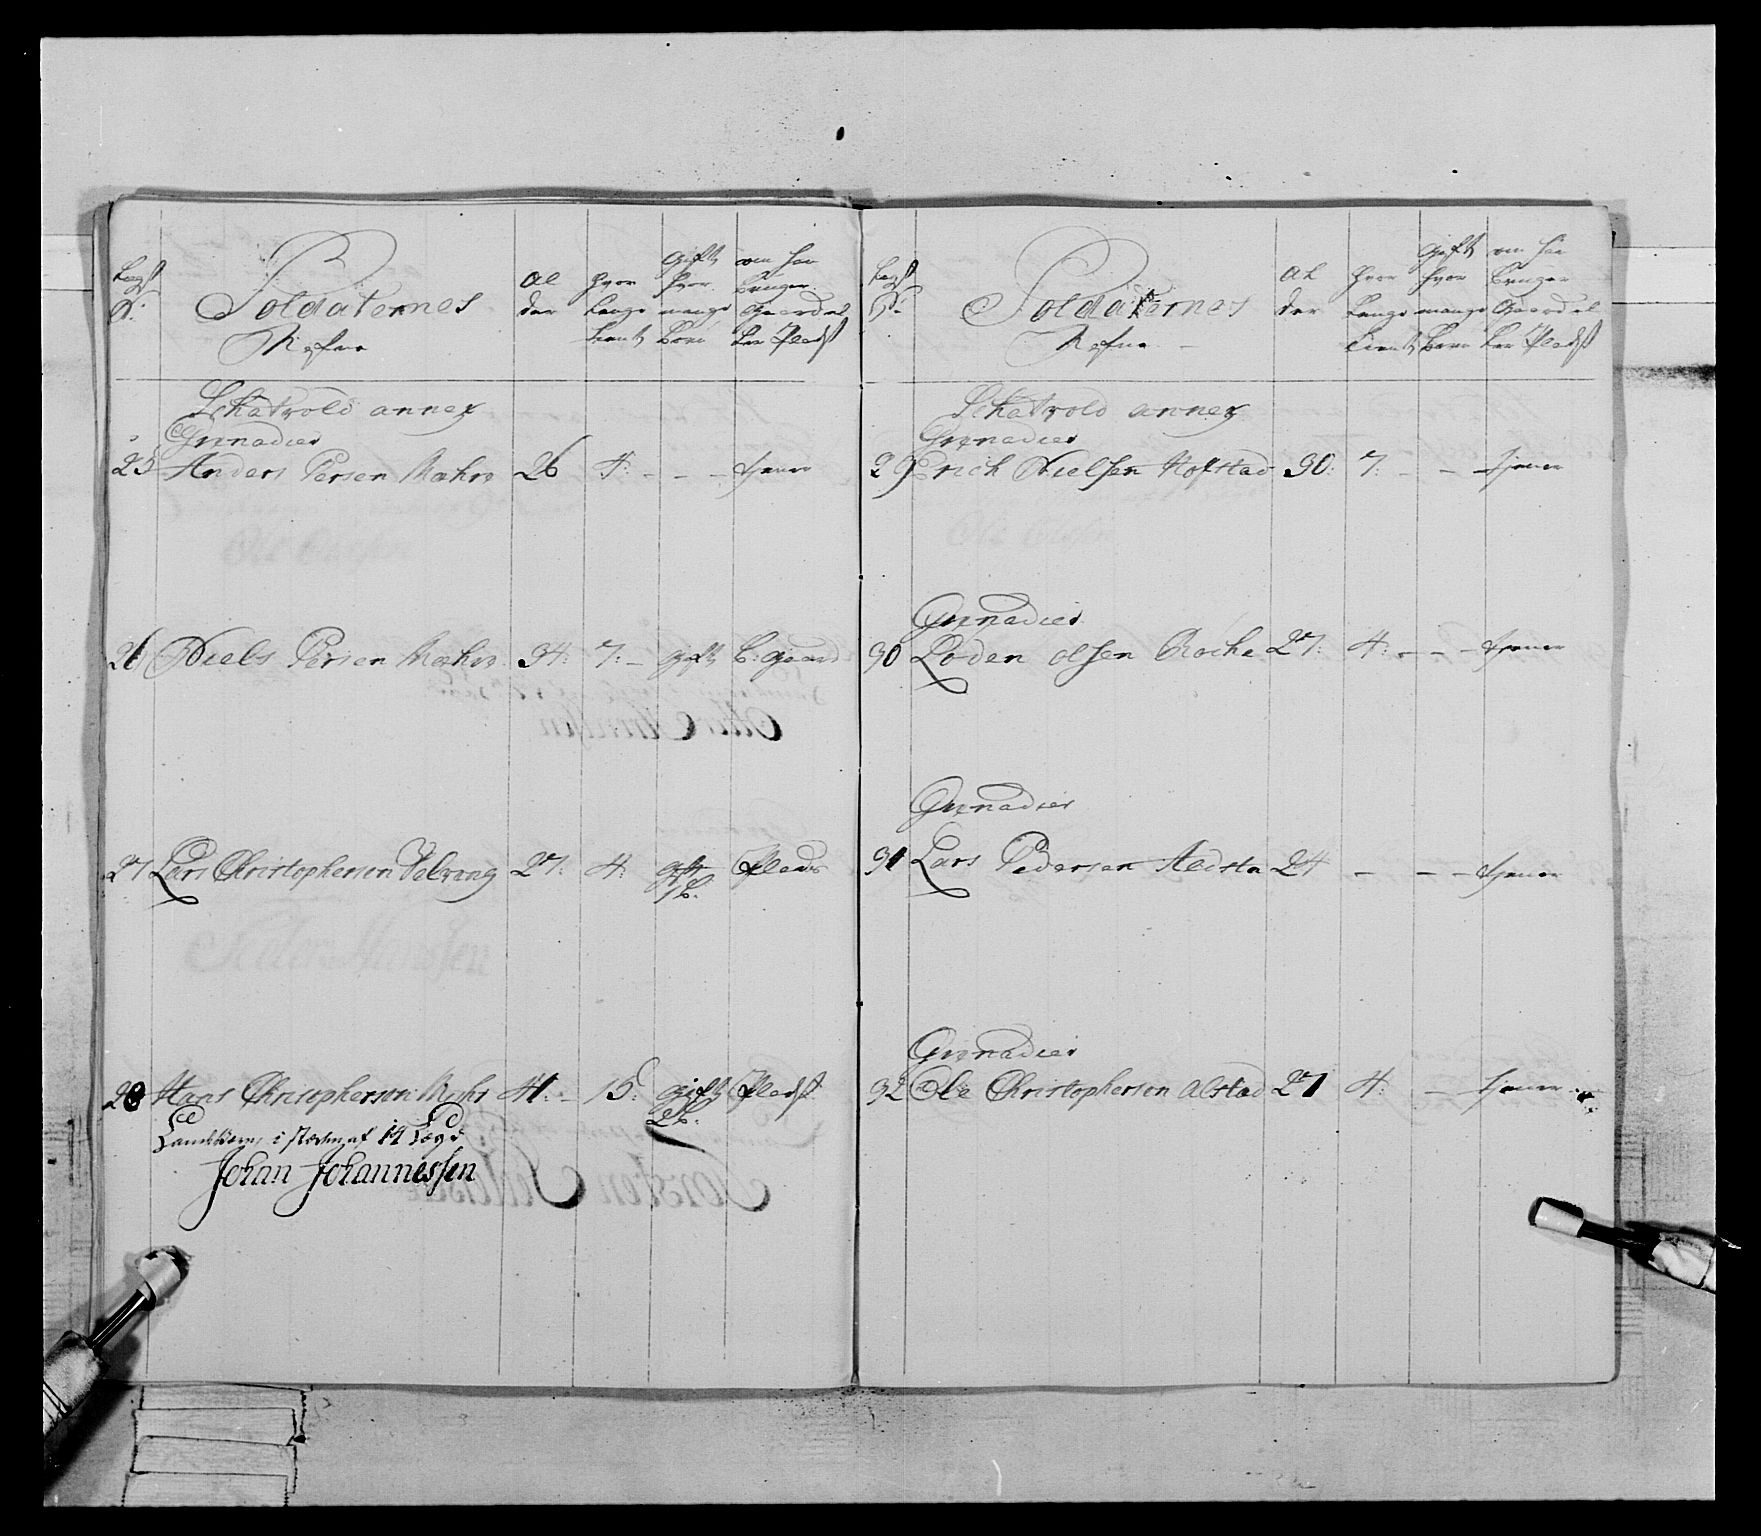 Legd
N:
Soldaternes
Nafne
Al
der
hvor
Lenge
tient
Gift
hvor
mange
Børn
om han
bruger
Gaard el
ler Pladß
Schatvold annex
Grenadier
25 Anders Persen Mæhre 26 4: - - - tjener
26 Niels Persen Mæhre 34: 7: - gift b: gaard
27 Lars Christophersen Velvang 27: 4: gift 1 b: Plads
28 Hans Christophersen Mæhre 41: - 15: gift 2 b: Pladß
Landværn i steden af 14 Lægd
Johan Johannessen
Legd
N:
Soldaternes
Nafne
Al
der
hvor
Lenge
tient
Gift
hvor
mange
Børn
om han
bruger
Gaard el
ler Pladß
Schatvold annex
Grenadier
29 Erich Nielsen Hofstad 30: 7: - - - tjener
Grenadier
30 Loden Olsen Roche 27: 4: - - - tjener
Grenadier
31 Lars Pedersen Aldsta 24 - - - tjener
Grenadier
32 Ole Christophersen Alstad 27 4: - tjener